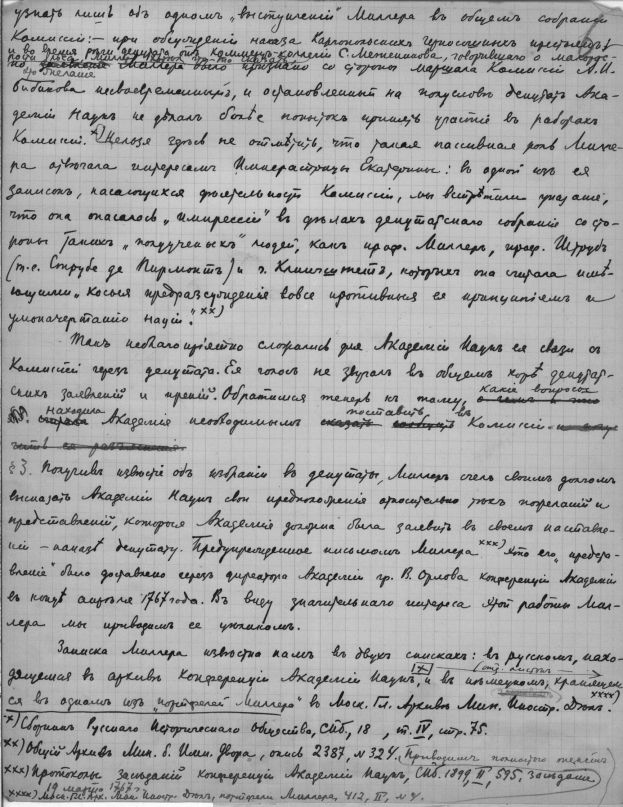 узнать лишь объ одномъ „выступленіи" Миллера въ общемъ собраніи
Комиссіи: — при обсужденіи наказа Каргопольскихъ черносошныхъ крестьянъ
и во время рѣчи депутата отъ Коммерцъ-коллегіи С. Меженинова, говорившаго о малорос-
Миллера было признано со стороны маршала Комиссіи А. И.
Бибикова несвоевременнымъ, и остановленный на полусловѣ депутатъ Ака-
деміи Наукъ не дѣлалъ болѣе попытокъ принять участіе въ работахъ
Комиссіи. х) Нельзя здѣсь не отмѣтить, что такая пассивная роль Милле-
ра отвѣчала интересамъ Императрицы Екатерины: въ одной изъ ея
записокъ, касающихся дѣятельности Комиссіи, мы встрѣтили указаніе,
что она опасалась „импрессіи" въ дѣлахъ депутатскаго собранія со сто-
роны такихъ „подученыхъ" людей, какъ проф. Миллеръ, проф. Штрубъ
(т.е. Струбе де Пирмонтъ) и г. Клингштетъ, которыхъ она считала имѣ-
ющими „косыя предразсужденіе вовсе противныя ея принципіемъ и
умоначертанію націи". хх)
Такъ неблагопріятно сложились для Академіи Наукъ ея связи съ
Комиссіей черезъ депутата. Ея голосъ не звучалъ въ общемъ хорѣ депутат-
скихъ заявленій и преній. Обратимся теперь къ тому, какіе вопросы
находила Академія необходимымъ поставить въ Комиссіи.
§ 3. Получивъ извѣстіе объ избраніи въ депутаты, Миллеръ счелъ своимъ долгомъ
высказать Академіи Наукъ свои предположенія относительно тѣхъ пожеланій и
представленій, которыя Академія должна была заявить въ своемъ наставле-
ніи — наказѣ депутату. Предупрежденное письмомъ Миллера ххх) это его „предста-
вленіе" было доставлено черезъ директора Академіи гр. В. Орлова конференціи Академіи
въ концѣ апрѣля 1767 года. Въ виду значительнаго интереса этой работы Мил-
лера мы приводимъ ее цѣликомъ.
Записка Миллера извѣстна намъ въ двухъ спискахъ: въ русскомъ, нахо-
дящемся въ архивѣ Конференціи Академіи Наукъ, и въ нѣмецкомъ, хранящем-
ся въ одномъ изъ „портфелей Миллера" въ Моск. Гл. Архивѣ Мин. Иностр. Дѣлъ. хххх)
х) Сборникъ Русскаго Историческаго Общества, СПб, 18 , т. IV, стр. 75.
хх) Общій Архивъ Мин. б. Имп. Двора, опись 2387, № 324. Приводимъ полностью
ххх) Протоколы засѣданій конференціи Академіи Наукъ, СПб. 1899, II, 595, засѣданіе
19 марта 1767 г.
хххх) Моск. Гл. Арх. Мин. Иностр. Дѣлъ, портфели Миллера, 412, II, № 4.